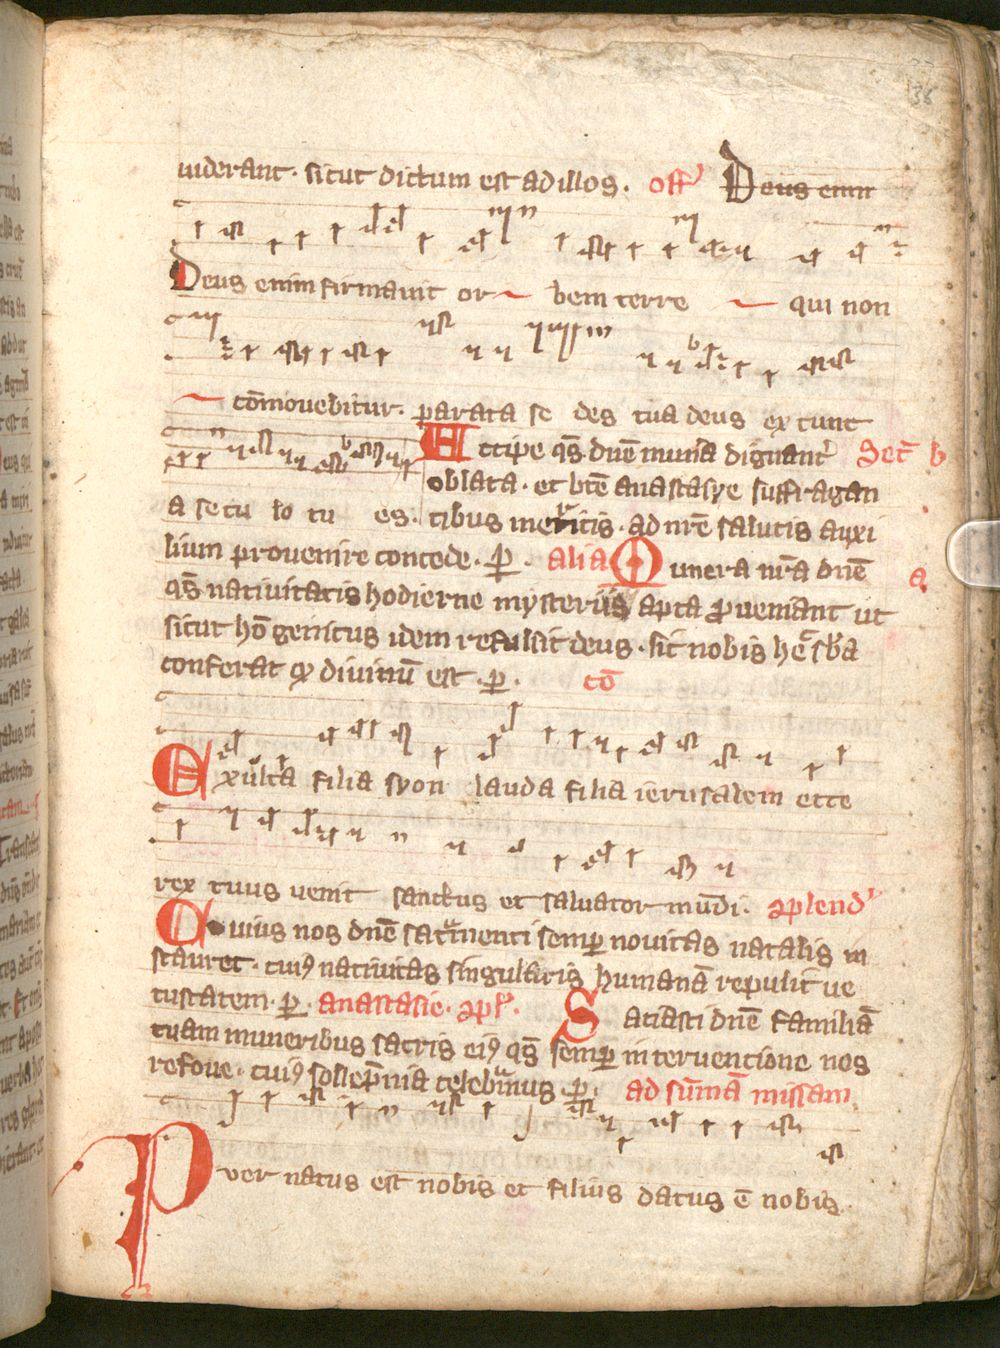 138
viderant · sicut dictum est ad illos · off' Deus enim
Deus enim firmavit or bem terre qui non
cōmovebitur · parata se des tua deus ex tunc
Accipe q̄s dn̄e munera dignanť Secr̄ b
oblata · et bt̄e anastasye suffragan
a se cu lo tu es · tibus meritis · ad nr̄e salutis auxi
lium provenire concede · p̱ · alia Munera nr̄a dn̄e a
q̄s nativitatis hodierne mysteriis apta ꝓveniant ut
sicut hō genitus idem refulsit deus · sic nobis hec sb̄a
conferat qđ divinū est · p̱ · cō
Exulta filia syon lauda filia ierusalem ecce
rex tuus venit sanctus et salvator mūdi · ꝯplend'
Cuius nos dn̄e sacᵃmenti semꝑ novitas natalis in
stauret · cuiꝰ nativitas singularis humanā repulit ve
tustatem · p̱ · anastasie · ꝯpl' · Saciasti dn̄e familiā
tuam muneribus sacris eiꝰ q̄s semꝑ intervencione nos
refove · cuiꝰ sollep̄nia celebᵃmus · p̱ · ad sūmā missam
Puer natus est nobis et filius datus ē nobis